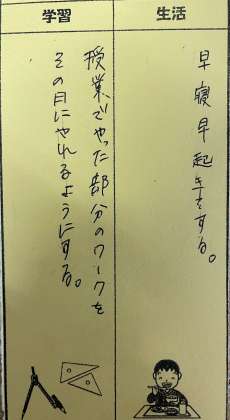 生活
早寝早起きをする。
学習
授業でやった部分のワークを
その日にやれるようにする。